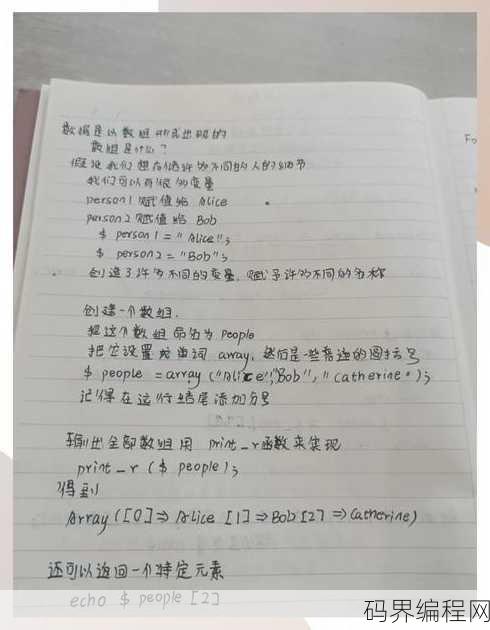 数据是以数组形式出现的
数组是什么?
假设我们想存储许多不同的人的细节
我们可以有很多变量
person1赋值给 Alice
person2赋值给 Bob
$ person1 = "Alice";
$ person2 = "Bob";
创造了许多不同的变量,赋予许多不同的名称
创建一个数组.
把这个数组命名为people
把它设置为单词 array,然后是一些普通的圆括号
$ people = array ("Alice","Bob","Catherine");
记得在这行结尾添加分号
输出全部数组用 print_r函数来实现
print_r ($ people);
得到
Array ([0]⇒ Alice [1]⇒Bob [2] ⇒Catherine)
还可以返回一个特定元素
echo $ people [2]
码界编程网